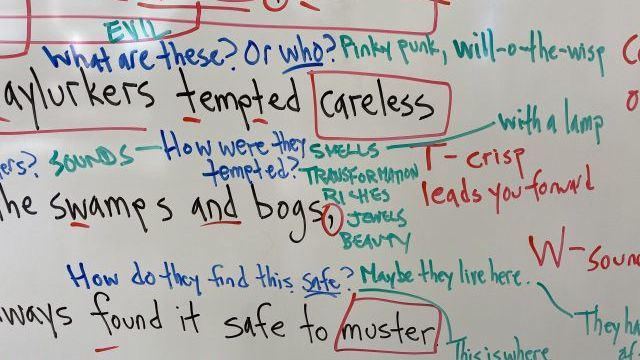 EVIL
What are these? Or who? Pinky punk, will-o-the-wisp
aylurkers tempted careless
with a lamp
ers? SOUNDS — How were they tempted?
SMELLS
TRANSFORMATION
RICHES
JEWELS
BEAUTY
T - crisp
leads you forward
he swamps and bogs,
W - soun
How do they find this safe? Maybe they live here.
They ha
ways found it safe to muster
This is where